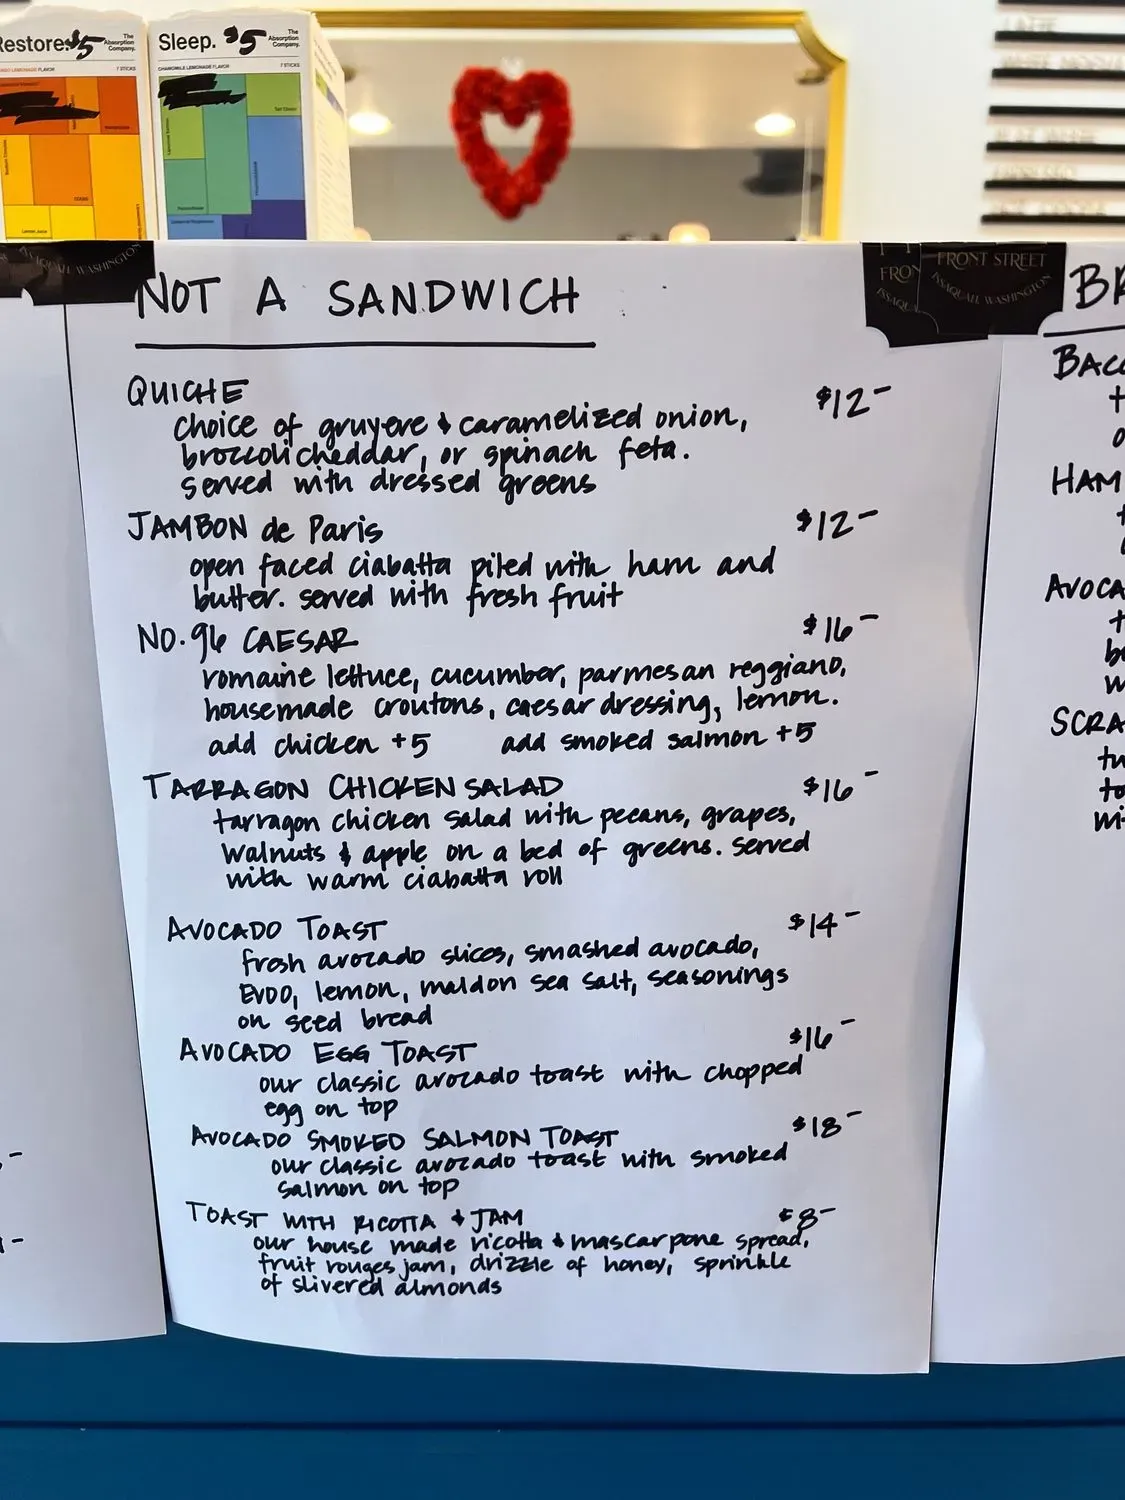 Restore. $5
The Absorption Company.
Sleep. $5
The Absorption Company.
CHAMOMILE LEMONADE FLAVOR
7 STICKS
7 STICKS
ISSAQUAH WASHINGTON
FRONT STREET
ISSAQUAH WASHINGTON
NOT A SANDWICH
QUICHE $12-
choice of gruyere & caramelized onion,
broccoli cheddar, or spinach feta.
served with dressed greens
JAMBON de Paris $12-
open faced ciabatta piled with ham and
butter. served with fresh fruit
NO. 96 CAESAR $16-
romaine lettuce, cucumber, parmesan reggiano,
housemade croutons, caesar dressing, lemon.
add chicken +5 add smoked salmon +5
TARRAGON CHICKEN SALAD $16-
tarragon chicken salad with pecans, grapes,
walnuts & apple on a bed of greens. served
with warm ciabatta roll
AVOCADO TOAST $14-
fresh avocado slices, smashed avocado,
EVOO, lemon, maldon sea salt, seasonings
on seed bread
AVOCADO EGG TOAST $16-
our classic avocado toast with chopped
egg on top
AVOCADO SMOKED SALMON TOAST $18-
our classic avocado toast with smoked
salmon on top
TOAST WITH RICOTTA & JAM $8-
our house made ricotta & mascarpone spread,
fruit rouges jam, drizzle of honey, sprinkle
of slivered almonds
BR
BACO
HAM
AVOCA
SCRA